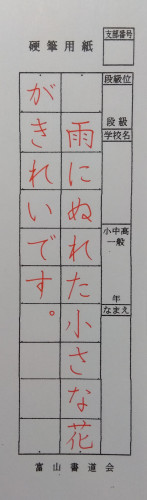 硬筆用紙
支部番号
段級位
段級
学校名
小中高
一般
年
なまえ
雨にぬれた小さな花
がきれいです。
富山書道会